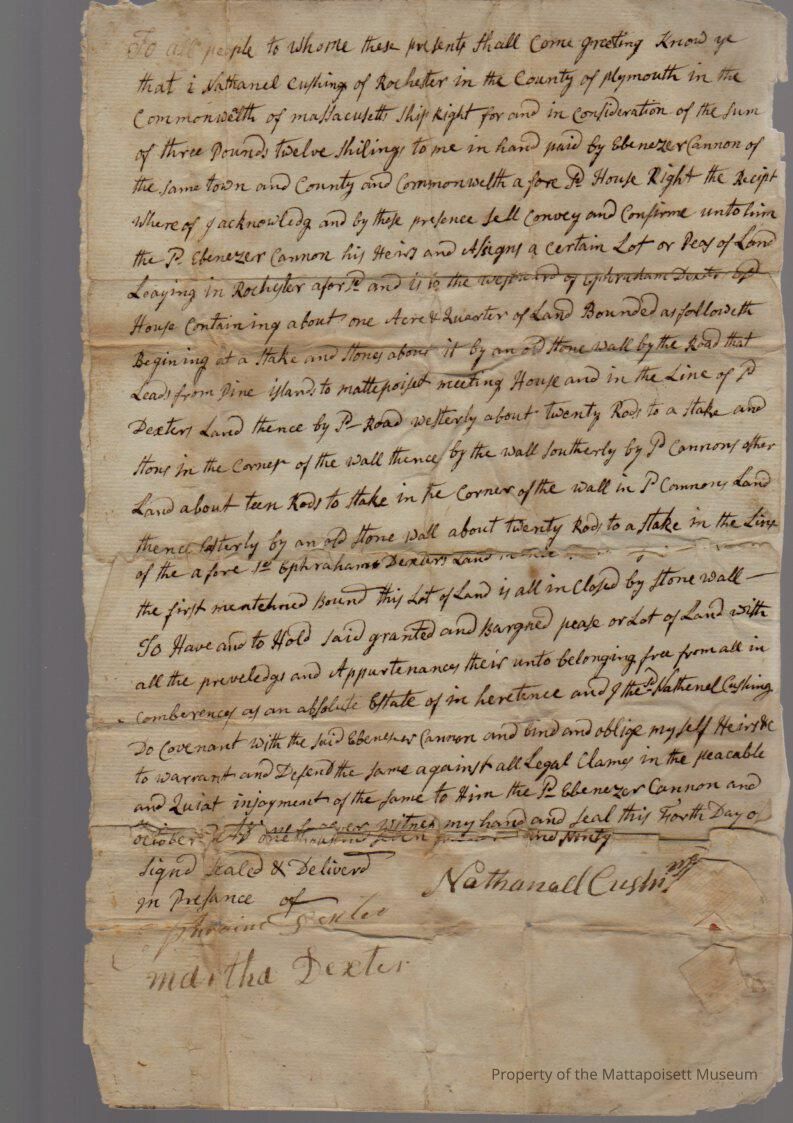 To all people to whome these presents shall Come greeting Know ye
that i Nathanel Cushing of Rochester in the County of plymouth in the
Commonwelth of massacusetts Ship Right for and in Consideration of the Sum
of three Pounds twelve Shilings to me in hand paid by Ebenezer Cannon of
the same town and County and Commonwelth a fore Sd House Right the Recipt
whereof I acknowledg and by these presence Sell Convey and Confirme unto him
the Sd Ebenezer Cannon his Heirs and Assigns a Certain Lot or Peas of Land
Leaying in Rochester afor Sd and is to the westward of Ephraham Dexter
House Containing about one Acre & Quarter of Land Bounded as followeth
Begining at a Stake and Stones about it by an old Stone wall by the Road that
Leads from Pine islands to mattepoiset meeting House and in the Line of Sd
Dexters Land thence by Sd Road westerly about twenty Rods to a Stake and
Stons in the Corner of the wall thence by the wall Southerly by Sd Cannons other
Land about teen Rods to Stake in the Corner of the wall in Sd Cannons Land
thence Esterly by an old Stone wall about twenty Rods to a Stake in the Line
of the afore Sd Ephrahams Dexters Land
the first mentehned Bound this Lot of Land is all in Closed by Stone wall —
To Have and to Hold Said granted and Bargned pease or Lot of Land with
all the preveledgs and Appurtenances their unto belonging free from all in
comberences as an absolute Estate of in heretence and I the Sd Nathenel Cushing
Do Covenant with the said Ebenezer Cannon and bind and oblige my self Heirs &c
to warrant and Defend the same against all Legal Clames in the peacable
and Quiat injoyment of the same to Him the Sd Ebenezer Cannon and
forever witnes my hand and Seal this Forth Day of
October one thousand Seven and Ninty
Signd Sealed & Deliverd
in Presance of
Nathanall Cushing
Ephraim Dexter
martha Dexter
Property of the Mattapoisett Museum